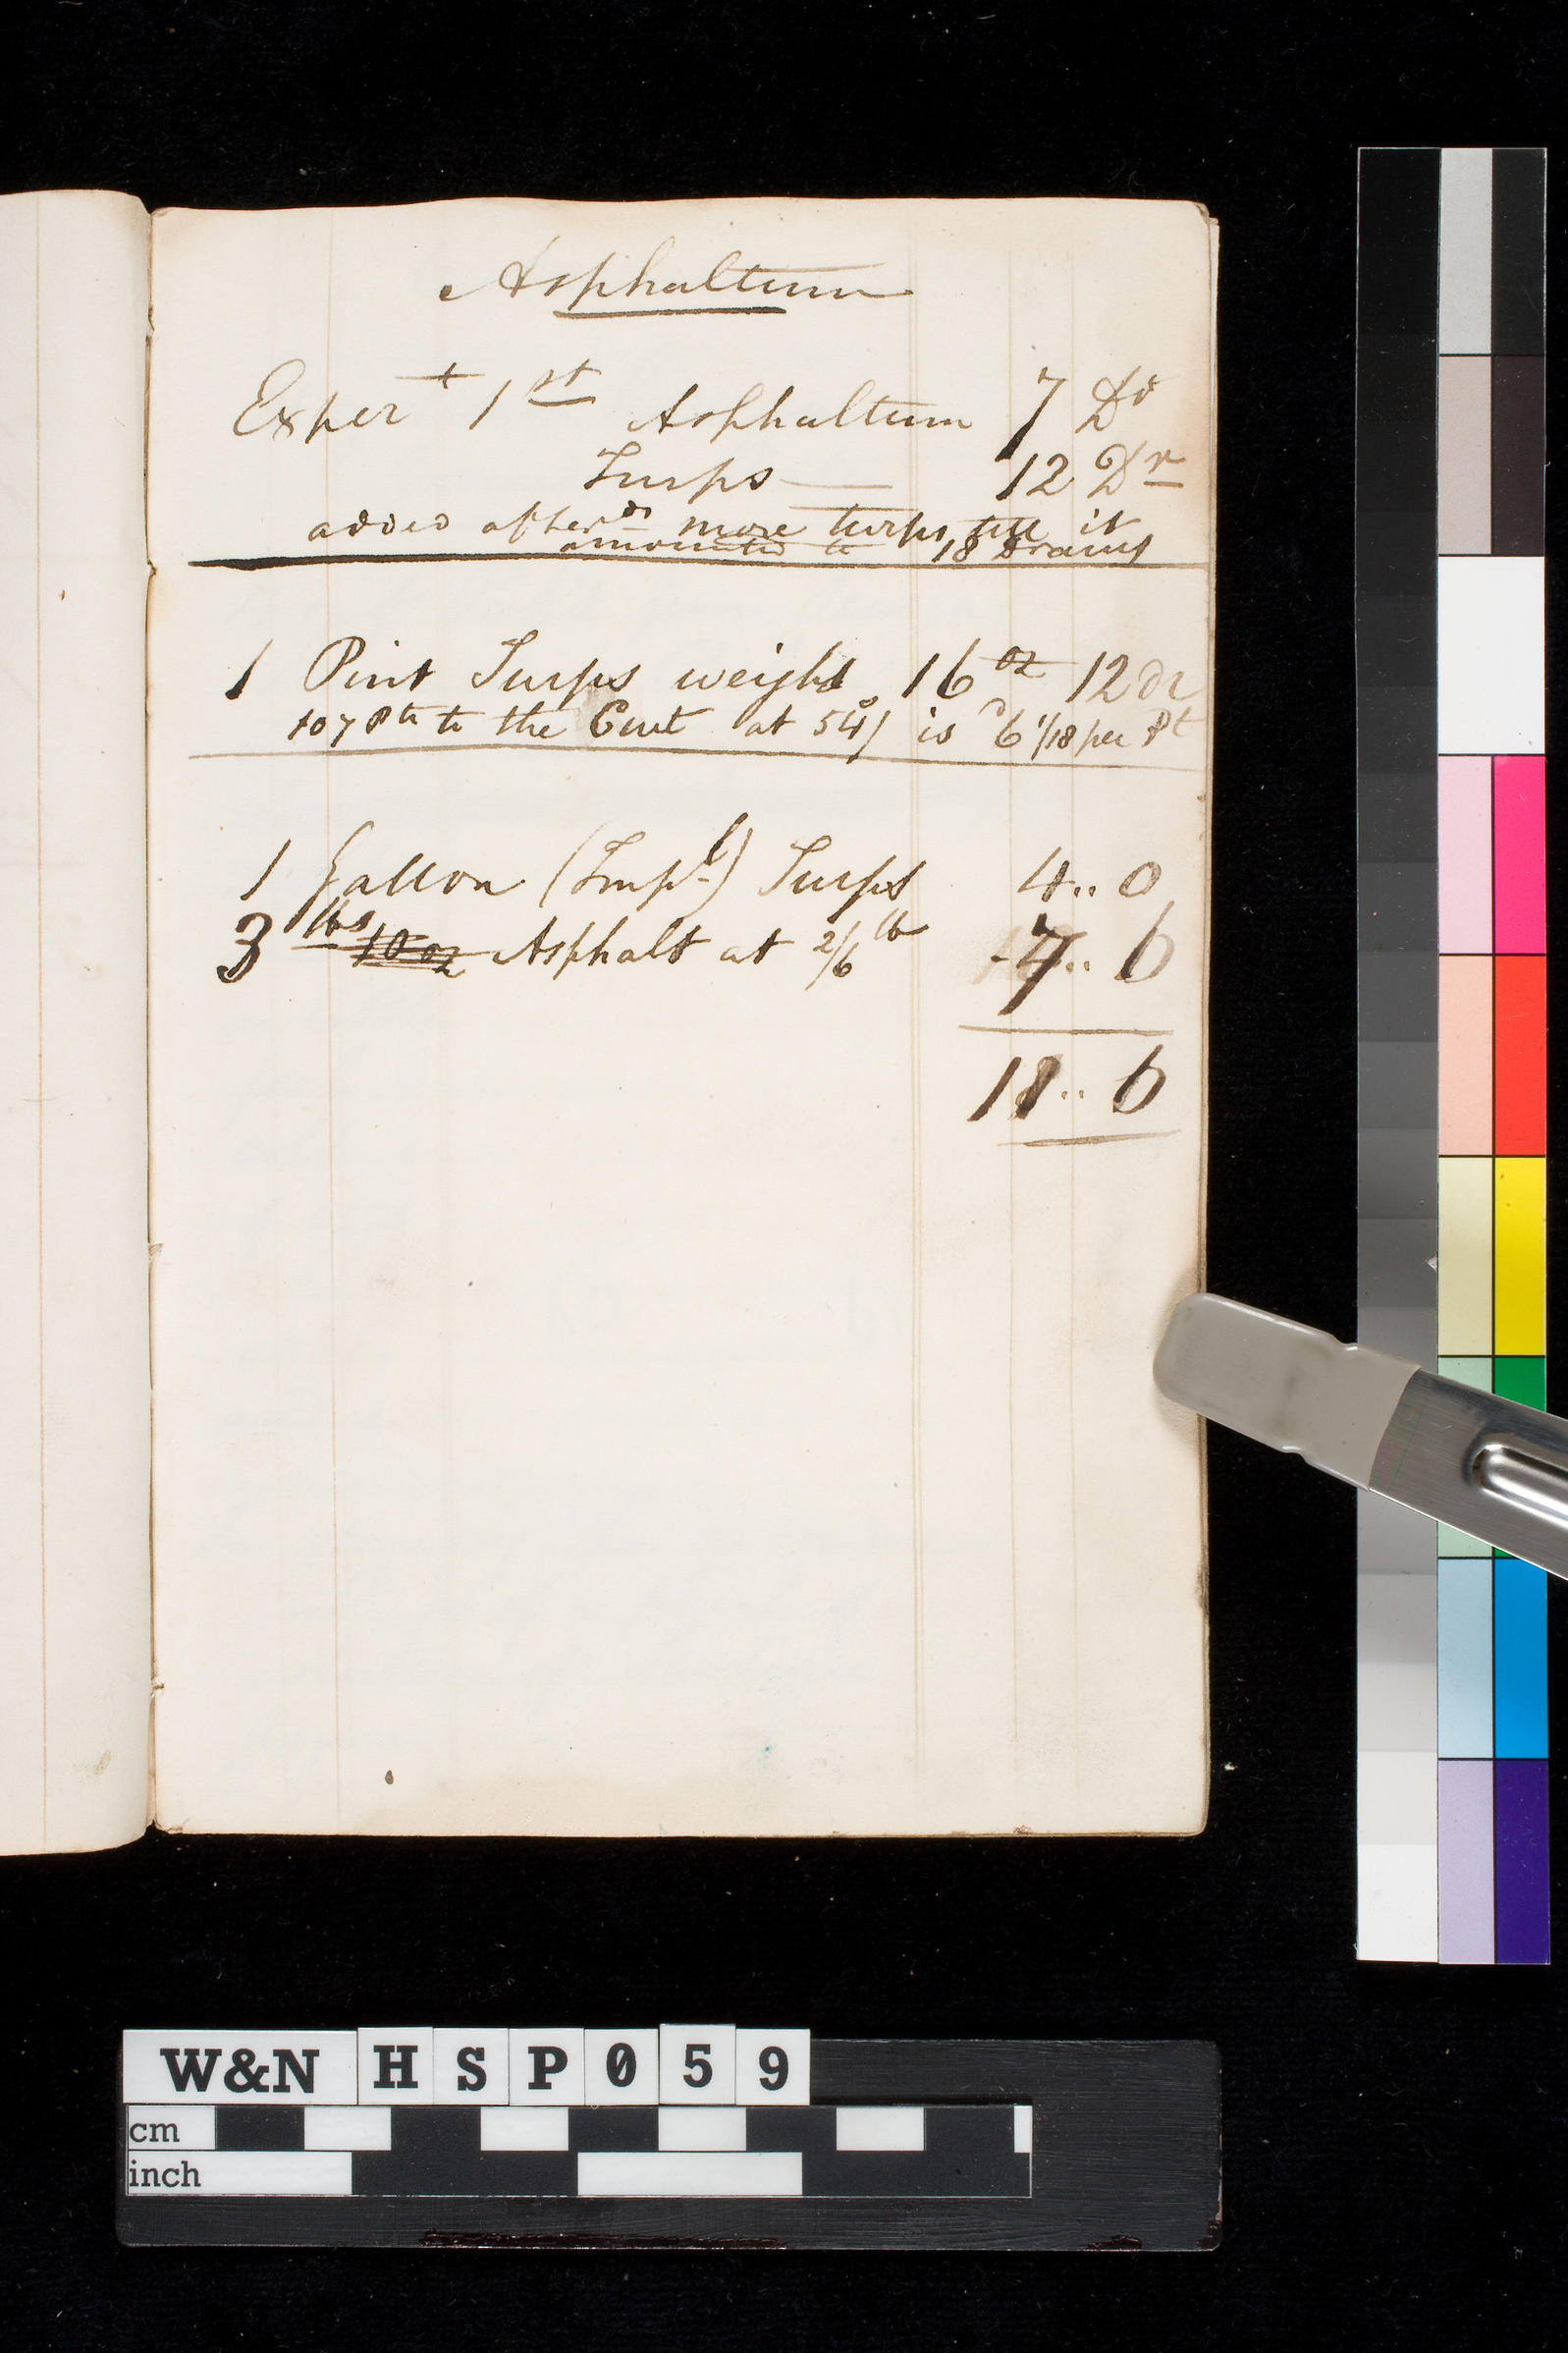 Asphaltum
Exper t 1st Asphaltum 7 Dr
Turps — 12 Dr
added afterds more turps till it
amounted to 18 drams
1 Pint Turps weighs 16 oz 12 dr
107 Pts to the Cwt at 54/ is 6d 1/18 per Pt
1 Gallon (Impl) Turps 4.. 0
3 lbs 10 oz Asphalt at 2/6 lb 7.. 6
11.. 6
W&N HSP059
cm
inch